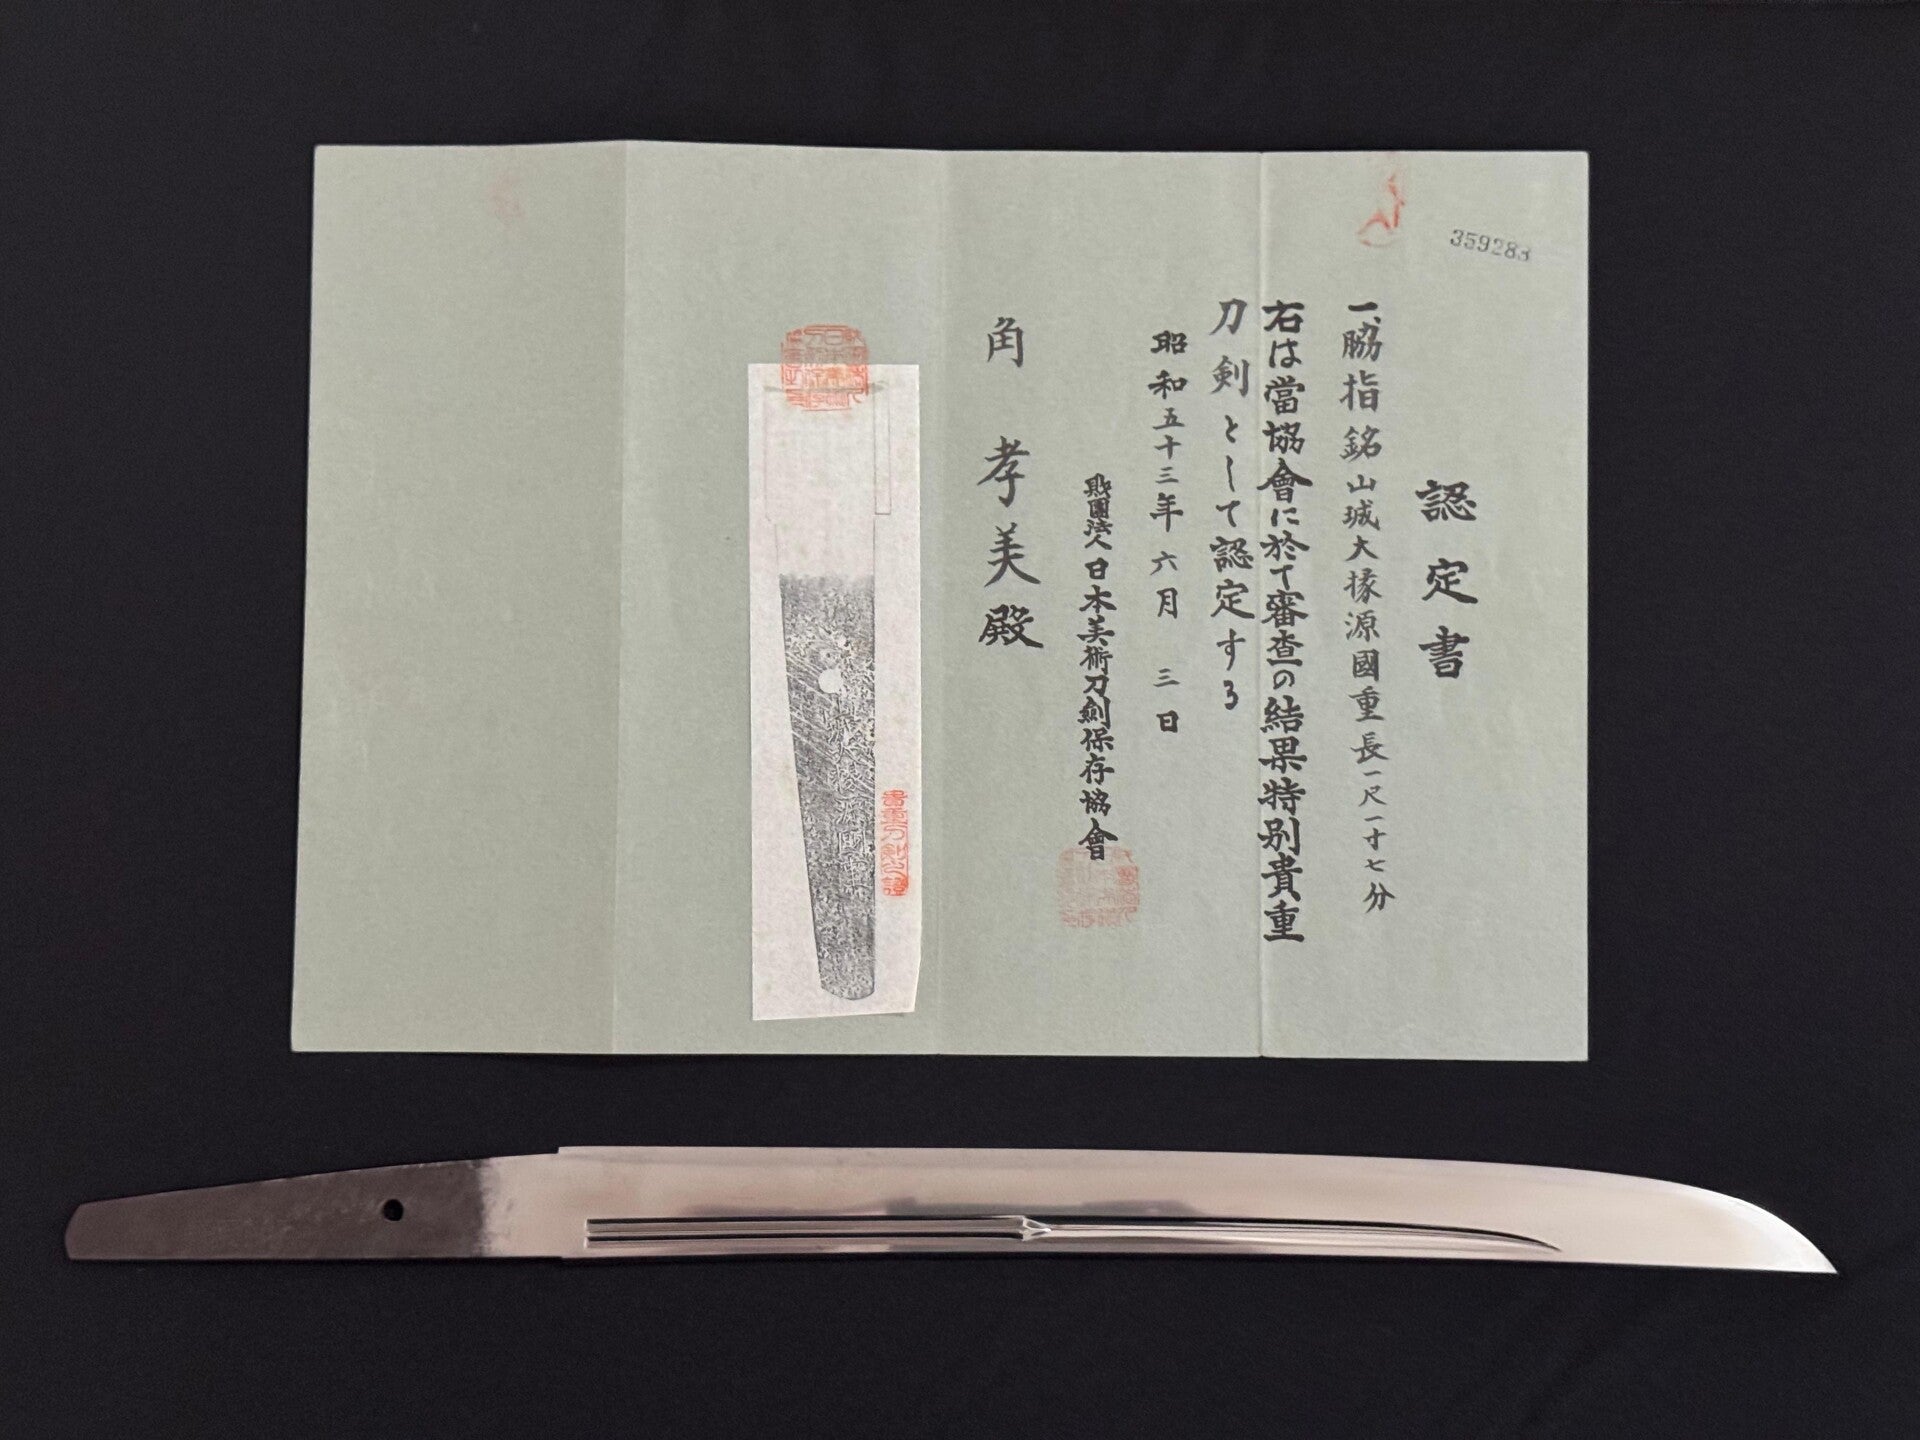 359283
認定書
一、脇指銘山城大掾源國重長一尺一寸七分
右は當協會に於て審査の結果特別貴重
刀剣として認定する
昭和五十三年六月三日
財團法人日本美術刀剣保存協會
角孝美殿
貴重刀剣之證
大掾源國重